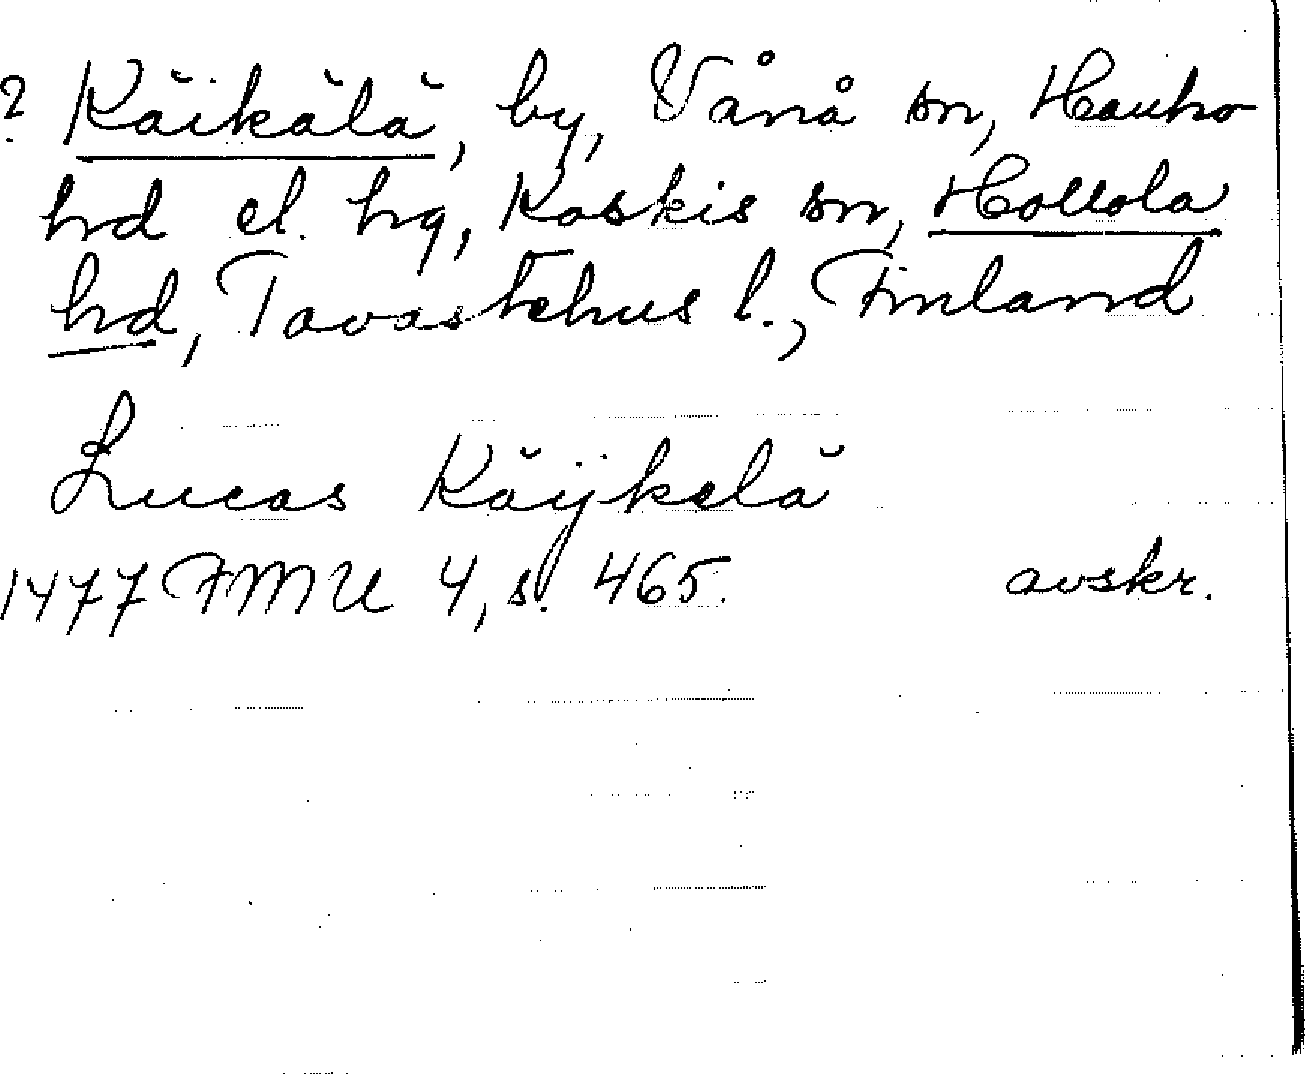 ? Käikälä, by, Vånå sn, Hauho
hd el. hg, Koskis sn, Hollola
hd, Tavastehus l., Finland
Lucas Käÿkelä
1477 FMU 4, s. 465. avskr.